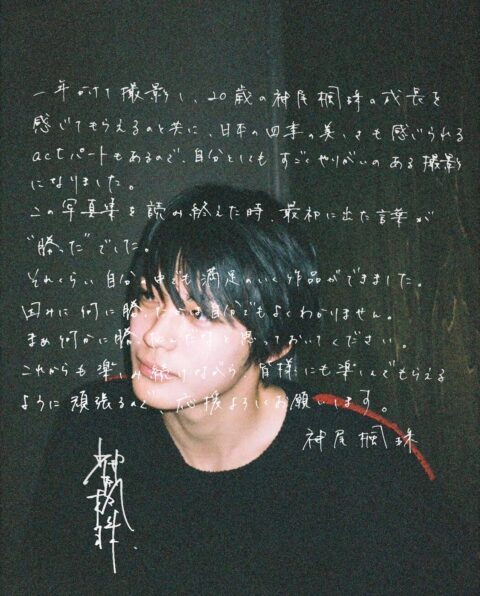 一年かけて撮影し、20歳の神尾楓珠の成長を
感じてもらえるのと共に、日本の四季の美しさも感じられる
actパートもあるので、自分としても すごくやりがいのある撮影
になりました。
この写真集を読み終えた時、最初に出た言葉が
"勝った"でした。
それくらい自分の中でも満足のいく作品ができました。
因みに何に勝ったかは自分でもよくわかりません。
まぁ何かに勝ったんだなと思っておいてください。
これからも楽しみ続けながら、皆様にも楽しんでもらえる
ように頑張るので、応援よろしくお願いします。
神尾楓珠
神尾楓珠